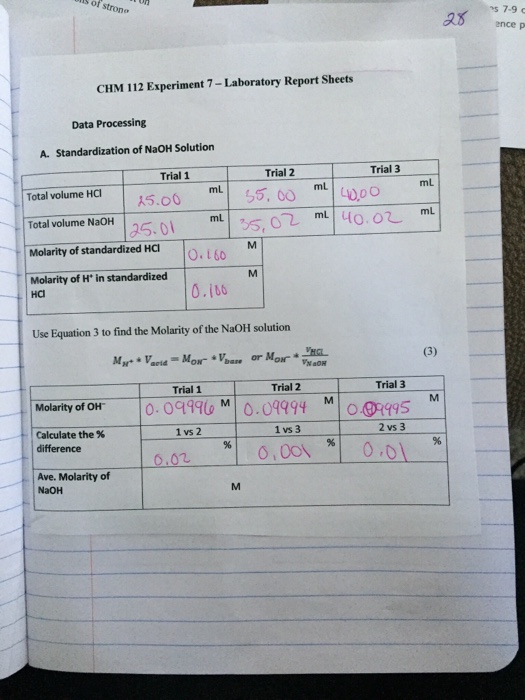 of strong
on
28
es 7-9
ence p
CHM 112 Experiment 7 – Laboratory Report Sheets
Data Processing
A. Standardization of NaOH Solution
Trial 1 Trial 2 Trial 3
Total volume HCl 25.00 mL 35.00 mL 40.00 mL
Total volume NaOH 25.01 mL 35.02 mL 40.02 mL
Molarity of standardized HCl 0.100 M
Molarity of H⁺ in standardized HCl 0.100 M
Use Equation 3 to find the Molarity of the NaOH solution
M_H⁺ * V_acid = M_OH⁻ * V_base or M_OH⁻ * V_HCl / V_NaOH (3)
Trial 1 Trial 2 Trial 3
Molarity of OH⁻ 0.09996 M 0.09994 M 0.09995 M
Calculate the % difference 1 vs 2 1 vs 3 2 vs 3
0.02 % 0.001 % 0.01 %
Ave. Molarity of NaOH M